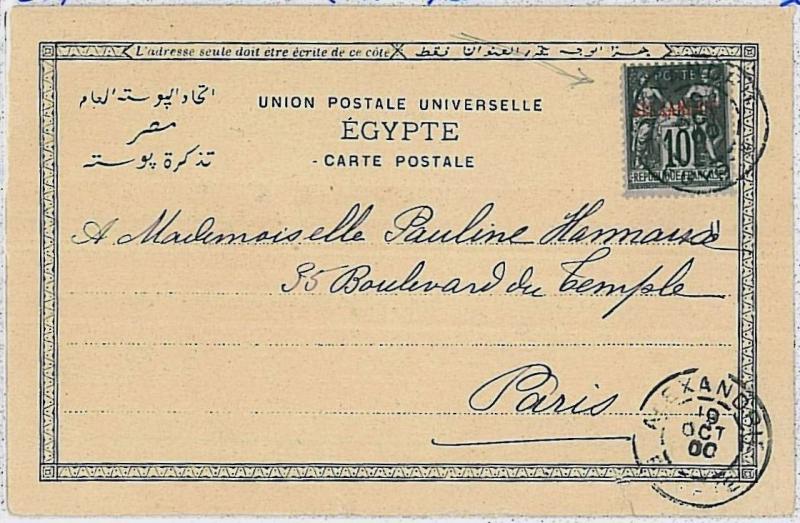 L'adresse seule doit être écrite de ce côté
فقط
اتحاد البوسته العام
مصر
تذكرة بوسته
UNION POSTALE UNIVERSELLE
ÉGYPTE
CARTE POSTALE
POSTE
10
RÉPUBLIQUE FRANÇAISE
A Mademoiselle Pauline
35 Boulevard du Temple
Paris
ALEXANDRIE
19
OCT
00